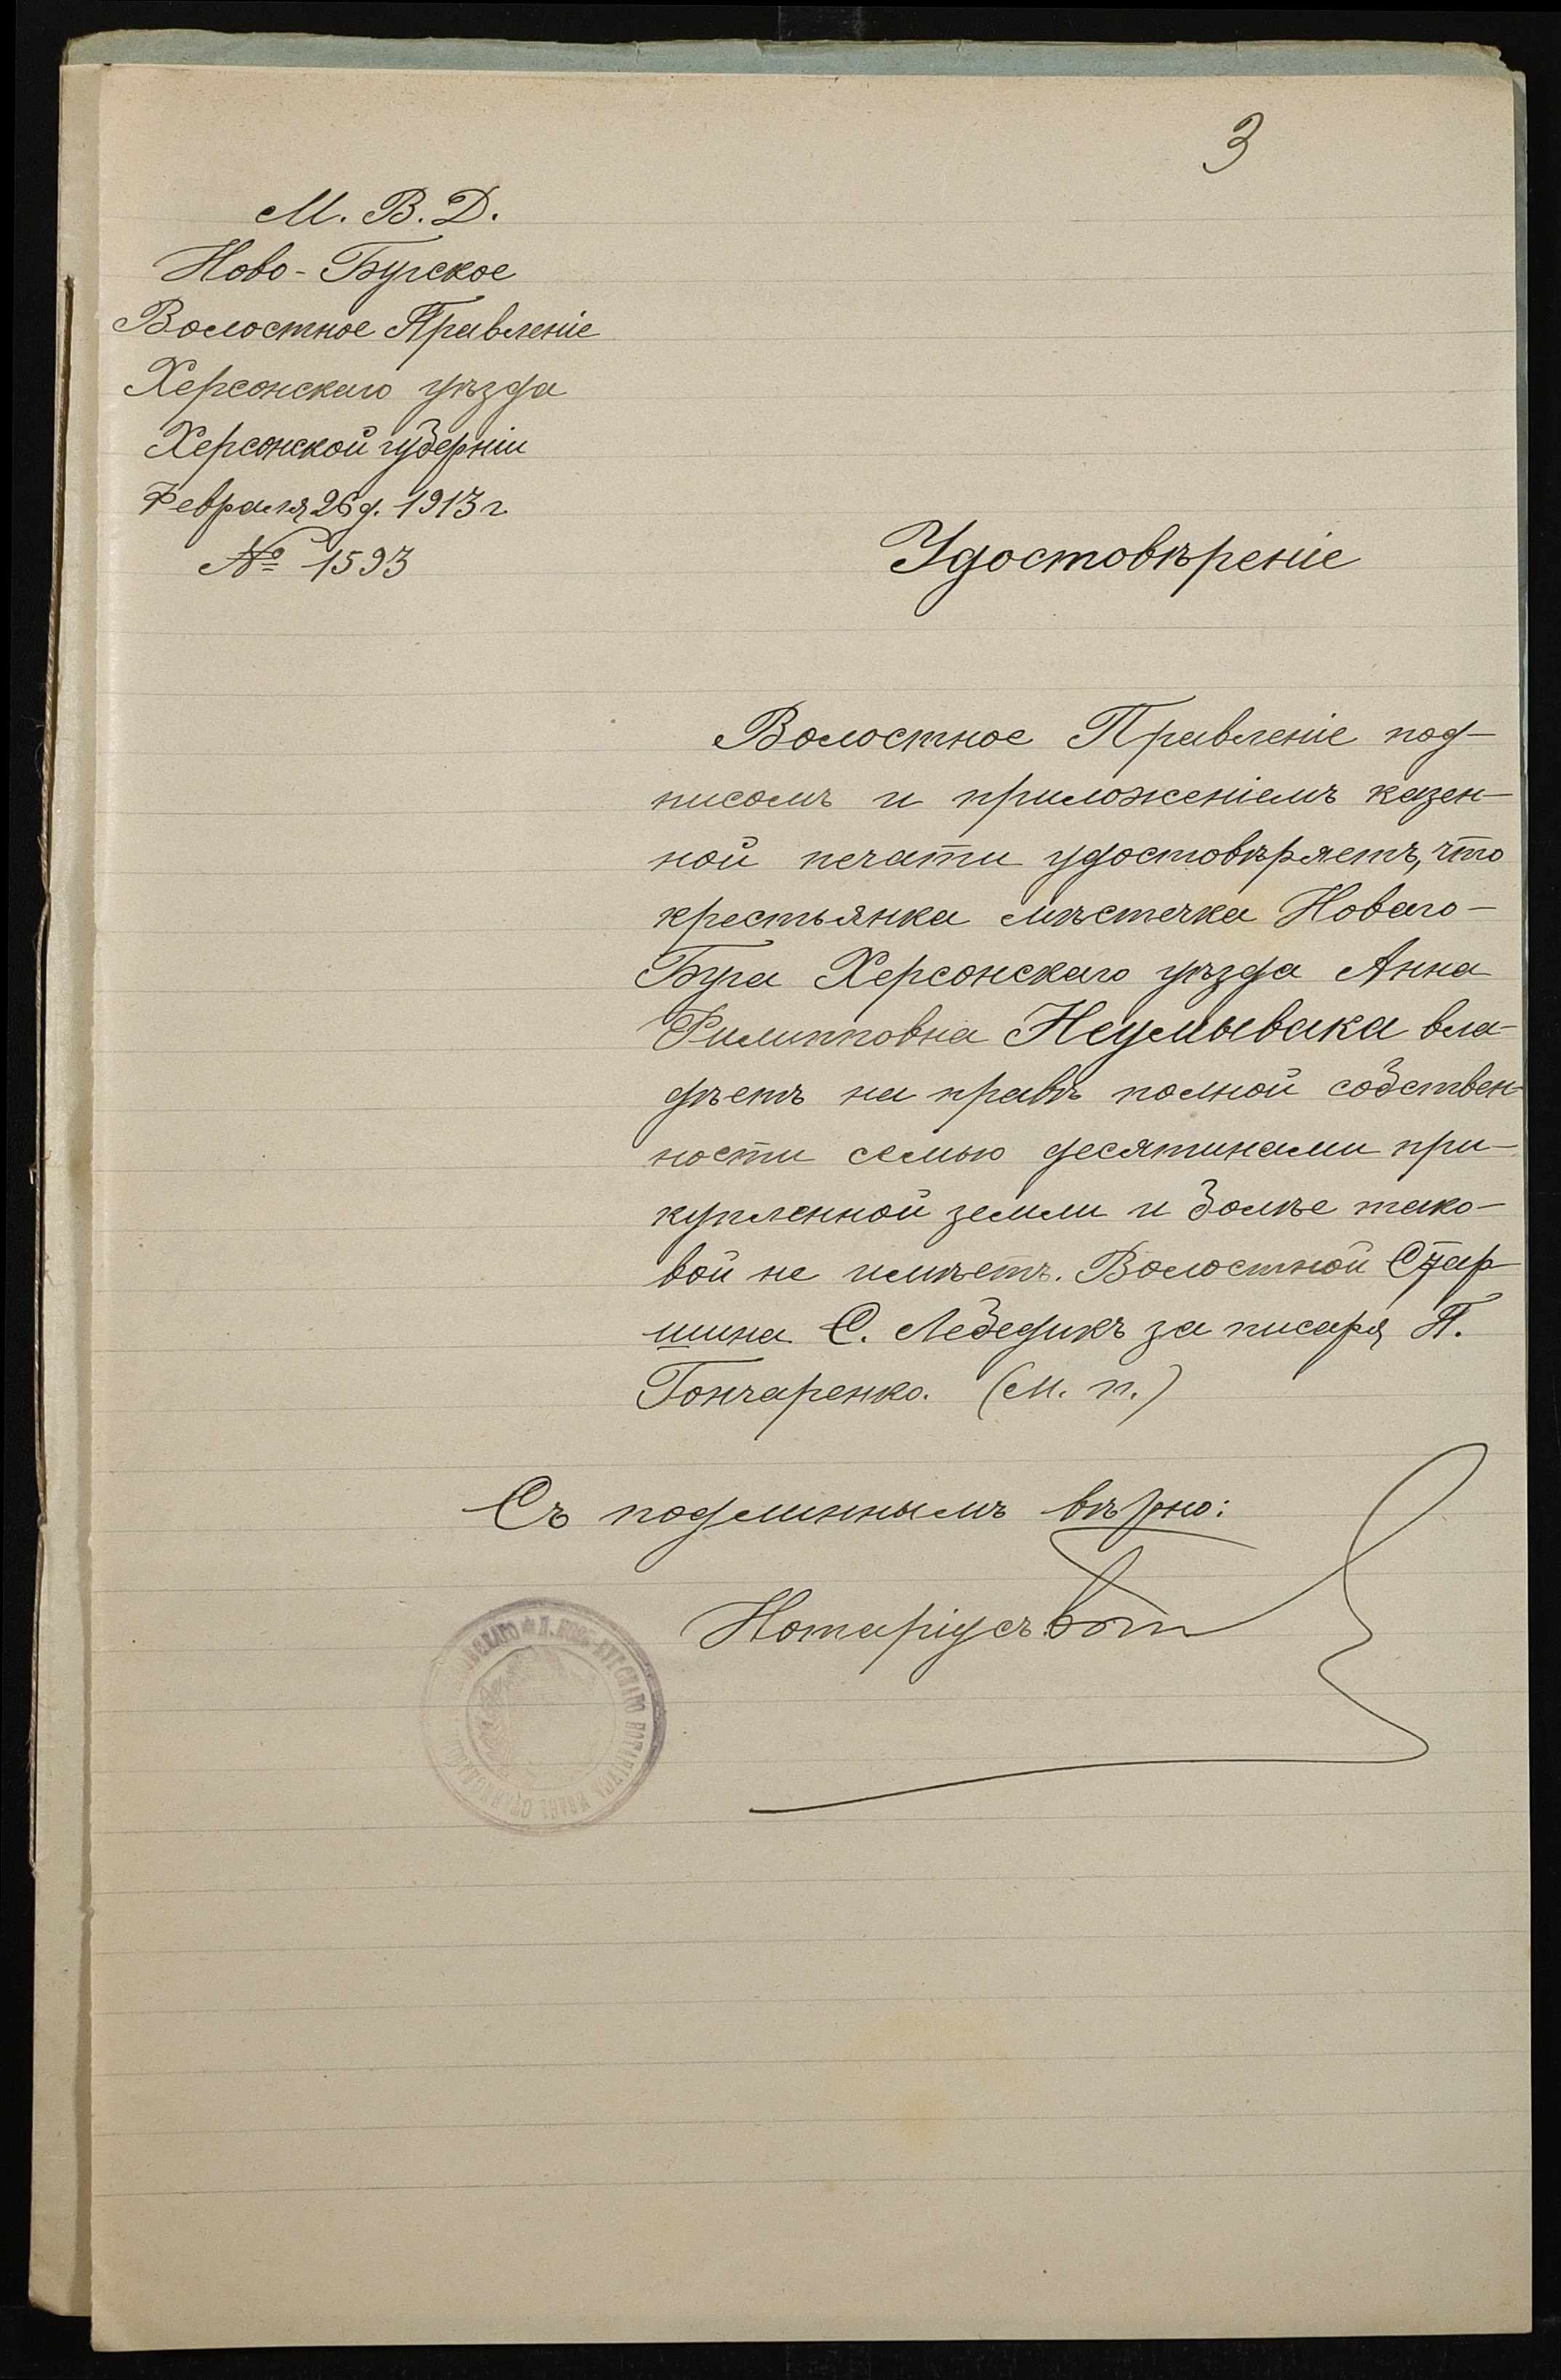 3
М. В. Д.
Ново-Бугское
Волостное Правленіе
Херсонскаго уѣзда
Херсонской губерніи
Февраля 26 д. 1913 г.
№ 1593
Удостовѣреніе
Волостное Правленіе под-
писомъ и приложеніемъ казен-
ной печати удостовѣряетъ, что
крестьянка мѣстечка Новаго-
Буга Херсонскаго уѣзда Анна
Филипповна Неумывака вла-
дѣетъ на правѣ полной собствен-
ности семью десятинами при-
купленной земли и болѣе тако-
вой не имѣетъ. Волостной Стар
шина С. Лебедикъ за писаря П.
Гончаренко. (М. п.)
Съ подлиннымъ вѣрно:
Нотаріусъ